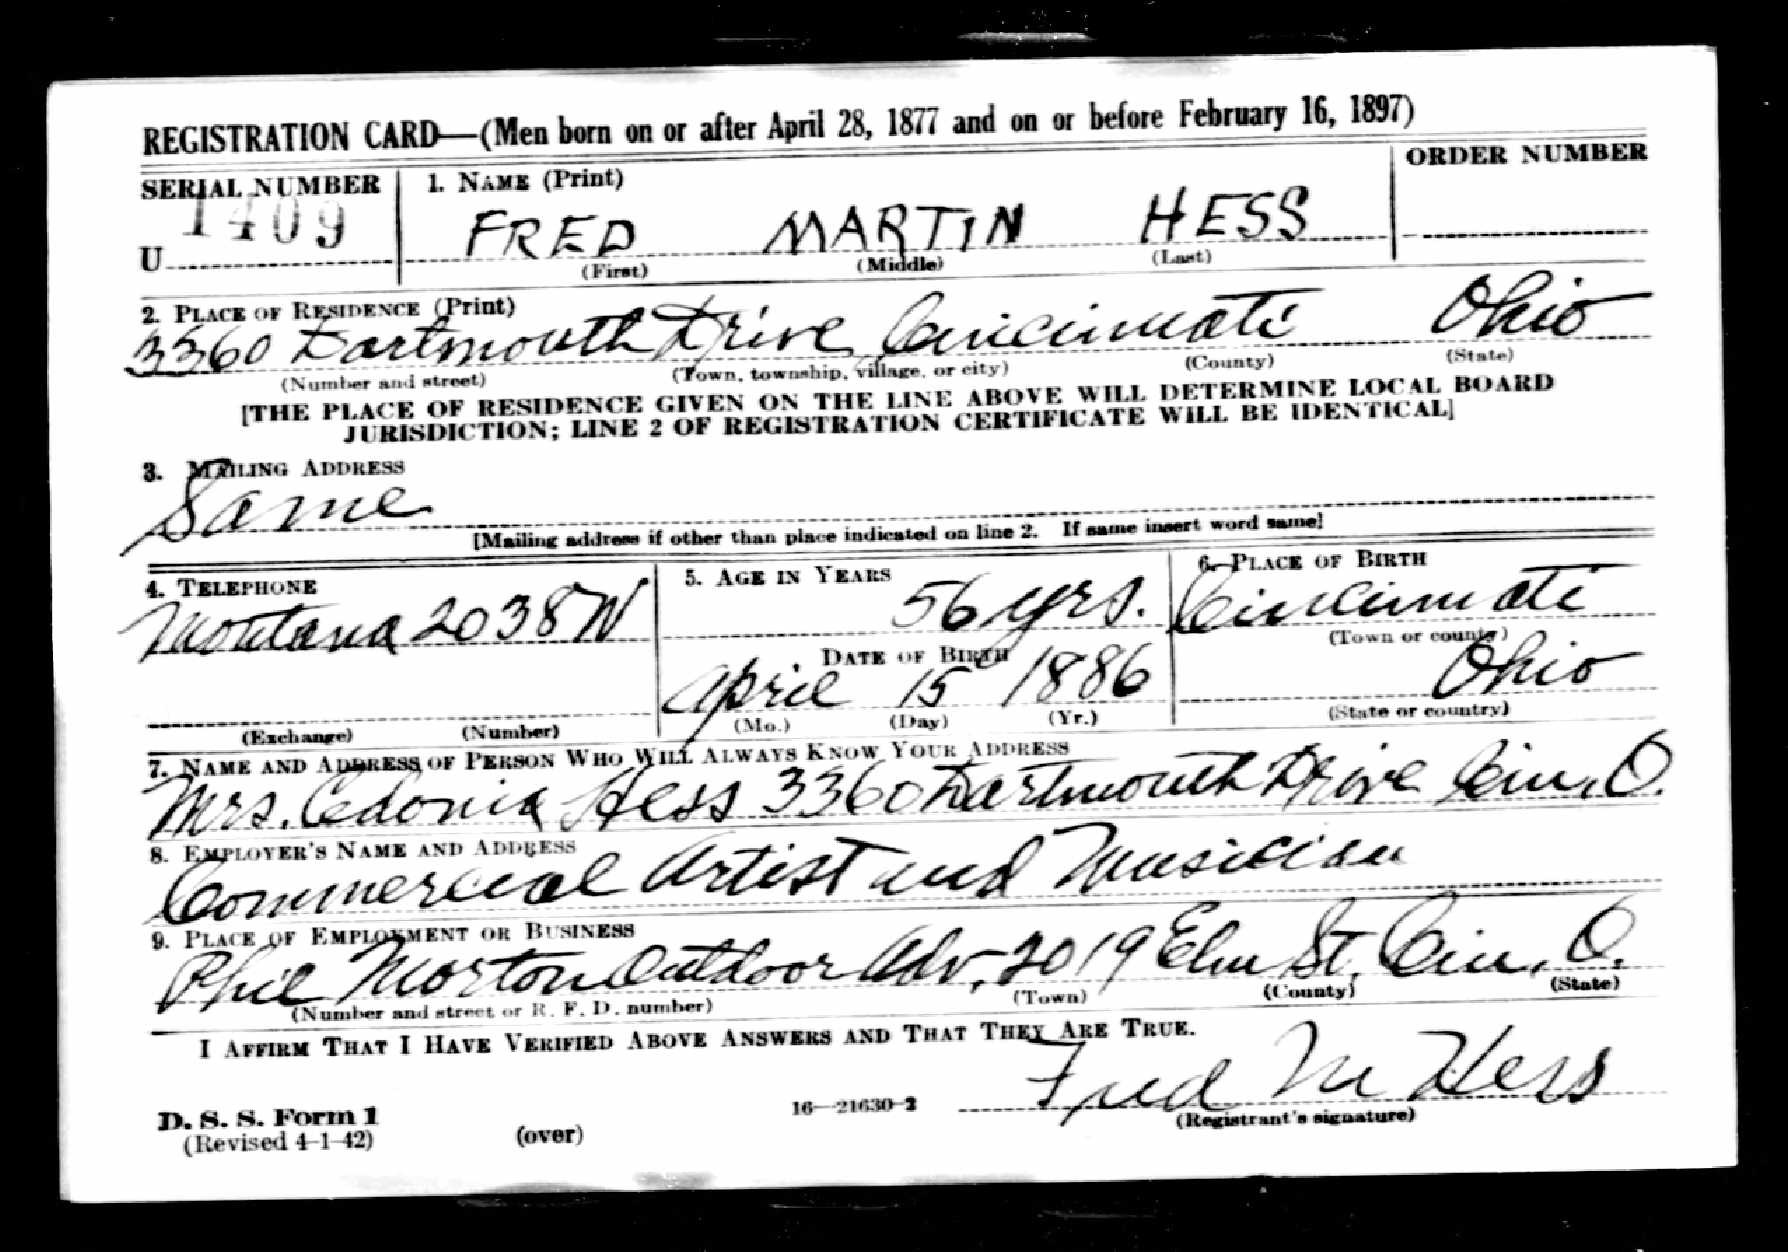 REGISTRATION CARD—(Men born on or after April 28, 1877 and on or before February 16, 1897)
SERIAL NUMBER 1. NAME (Print) ORDER NUMBER
U 1409 FRED MARTIN HESS
(First) (Middle) (Last)
2. PLACE OF RESIDENCE (Print)
3360 Dartmouth Drive Cincinnati Ohio
(Number and street) (Town, township, village, or city) (County) (State)
[THE PLACE OF RESIDENCE GIVEN ON THE LINE ABOVE WILL DETERMINE LOCAL BOARD
JURISDICTION; LINE 2 OF REGISTRATION CERTIFICATE WILL BE IDENTICAL]
3. MAILING ADDRESS
Same
[Mailing address if other than place indicated on line 2. If same insert word same]
4. TELEPHONE 5. AGE IN YEARS 6. PLACE OF BIRTH
Montana 2038W 56 yrs. Cincinnati
(Town or county)
DATE OF BIRTH
April 15 1886 Ohio
(Exchange) (Number) (Mo.) (Day) (Yr.) (State or country)
7. NAME AND ADDRESS OF PERSON WHO WILL ALWAYS KNOW YOUR ADDRESS
Mrs. Cedonia Hess 3360 Dartmouth Drive Cin. O.
8. EMPLOYER'S NAME AND ADDRESS
Commercial Artist and Musician
9. PLACE OF EMPLOYMENT OR BUSINESS
Phil Morton Outdoor Adv. 2019 Elm St. Cin. O.
(Number and street or R. F. D. number) (Town) (County) (State)
I AFFIRM THAT I HAVE VERIFIED ABOVE ANSWERS AND THAT THEY ARE TRUE.
Fred M Hess
D. S. S. Form 1 16—21630-2 (Registrant's signature)
(Revised 4-1-42) (over)